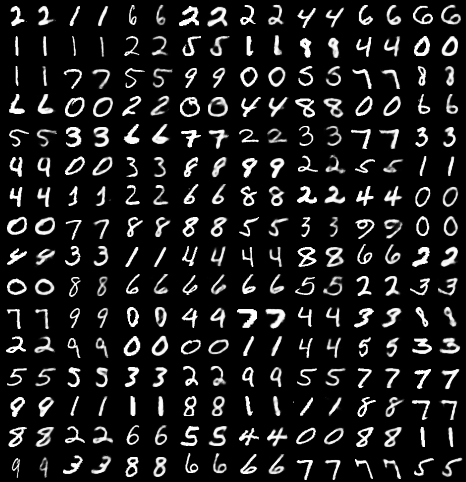 2 2 1 1 6 6 2 2 2 2 4 4 6 6 6 6
1 1 1 1 2 2 5 5 1 1 8 8 4 4 0 0
1 1 7 7 5 5 9 9 0 0 5 5 7 7 8 8
6 6 0 0 2 2 0 0 4 4 8 8 0 0 6 6
5 5 3 3 6 6 7 7 2 2 3 3 7 7 3 3
4 4 0 0 3 3 8 8 9 9 2 2 5 5 1 1
4 4 1 1 2 2 6 6 8 8 2 2 4 4 0 0
0 0 7 7 8 8 8 8 5 5 3 3 0 0
3 3 1 1 4 4 4 4 8 8 6 6 2 2
0 0 8 8 6 6 6 6 6 6 5 5 2 2 3 3
7 7 9 9 0 0 4 4 7 7 4 4 3 3 8 8
2 2 9 9 0 0 0 0 1 1 4 4 5 5 3 3
5 5 5 5 3 3 2 2 9 9 5 5 7 7 7 7
9 9 1 1 1 1 8 8 1 1 1 1 8 8 7 7
8 8 2 2 6 6 5 5 4 4 0 0 8 8 1 1
9 9 3 3 8 8 6 6 6 6 7 7 7 7 5 5